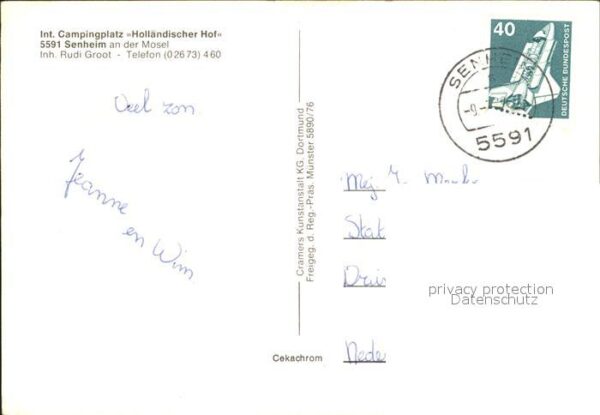 Int. Campingplatz »Holländischer Hof«
5591 Senheim an der Mosel
Inh. Rudi Groot - Telefon (0 26 73) 4 60
40
DEUTSCHE BUNDESPOST
SENHEIM
5591
Veel zon
Jeanne
en Wim
Cramers Kunstanstalt KG. Dortmund
Freigeg. d. Reg.-Präs. Münster 5890/76
Mej
Stat
Drie
Nede
privacy protection
Datenschutz
Cekachrom